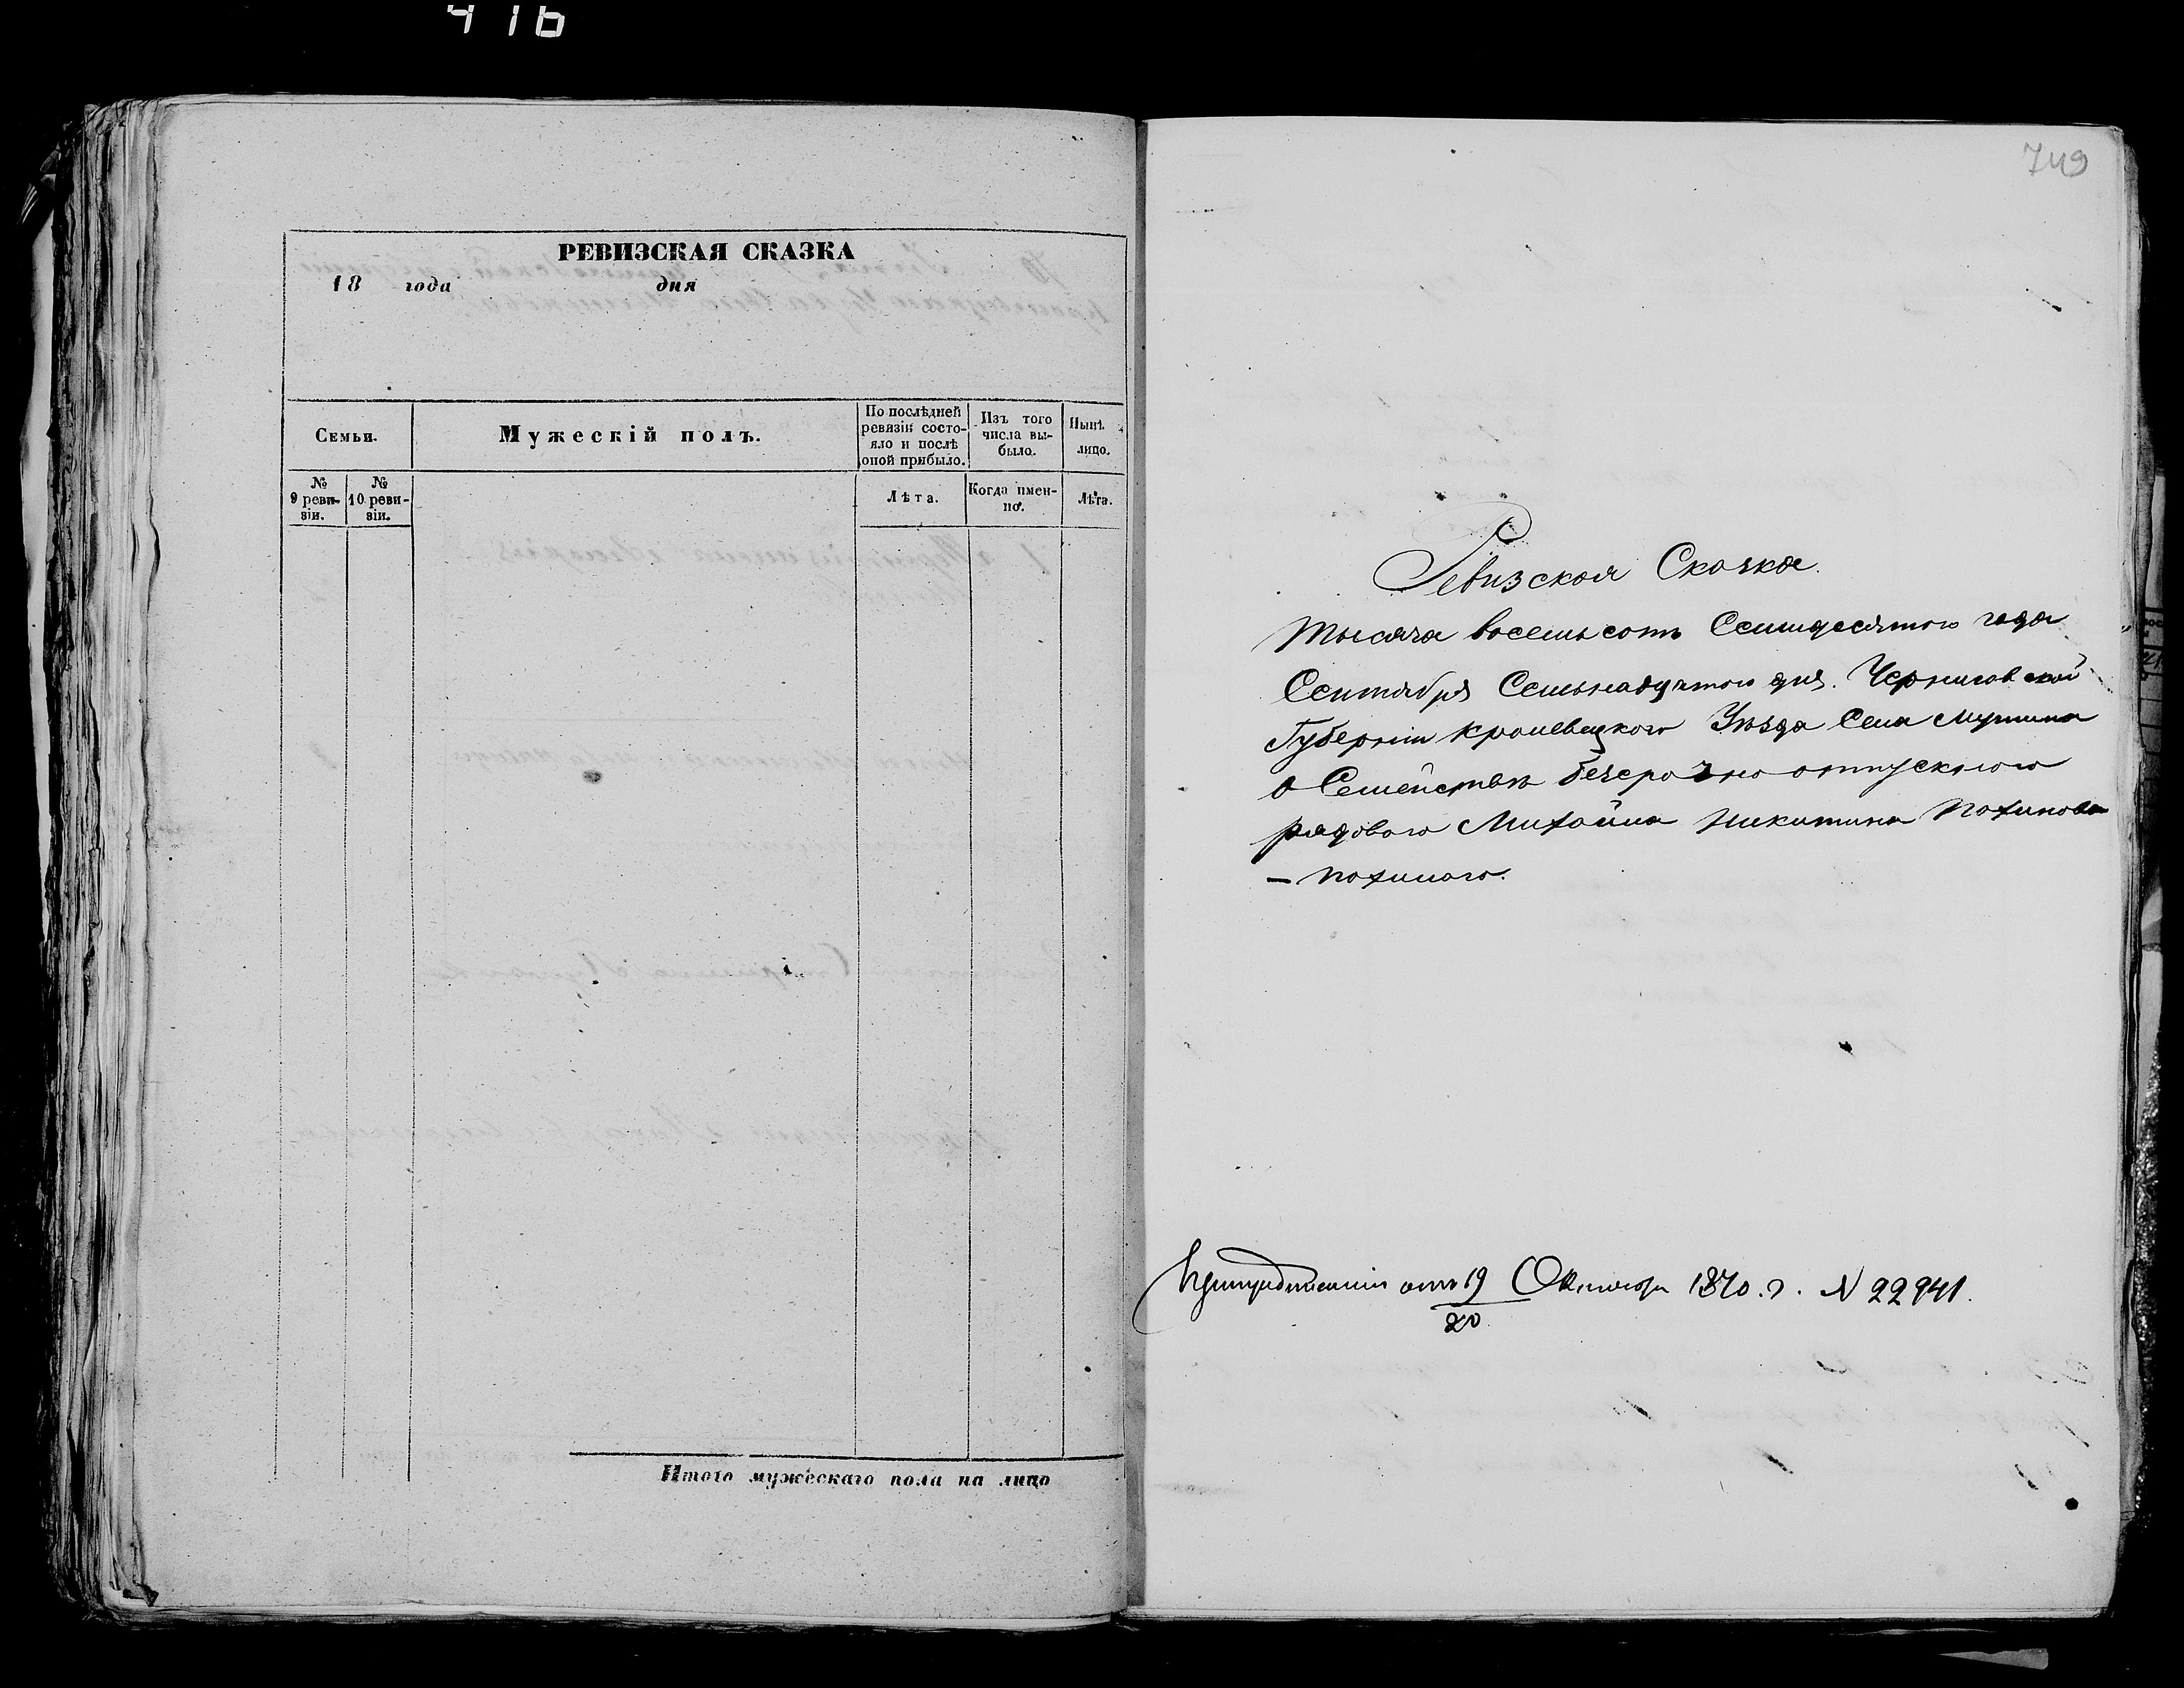 416
РЕВИЗСКАЯ СКАЗКА
18 года дня
Семьи.
Мужескій полъ.
По послѣдней
ревизіи состо-
яло и послѣ
оной прибыло.
Изъ того
числа вы-
было.
Нынѣ.
лицо.
№
9 реви-
зіи.
№
10 реви-
зіи.
Лѣта.
Когда имен-
но.
Лѣта.
Итого мужескаго пола на лицо
749
Ревизская Сказка.
Тысяча восемьсотъ Семидесятого года
Сентября Семьнадцятого дня. Черниговской
Губерніи Кролевецкого Уѣзда Села Мутина
о Семействѣ безсрочно отпускного
рядового Михайла Никитина
отъ 19 Октября 1870. г. N 22941.
20